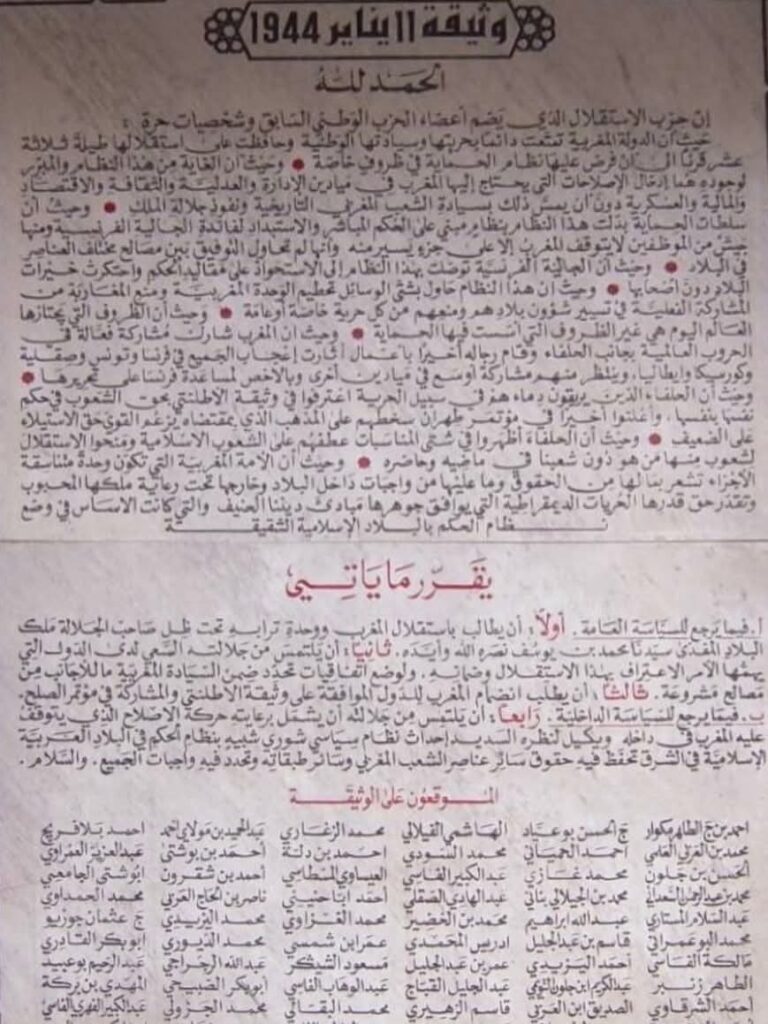 وثيقة 11 يناير 1944
الحمد لله
إن حزب الاستقلال الذي يضم أعضاء الحزب الوطني السابق وشخصيات حرة :
حيث أن الدولة المغربية تمتعت دائما بحريتها وسيادتها الوطنية وحافظت على استقلالها طيلة ثلاثة
عشر قرنا الى أن فرض عليها نظام الحماية في ظروف خاصة • وحيث أن الغاية من هذا النظام والمبرر
لوجوده هما إدخال الإصلاحات التي يحتاج إليها المغرب في ميادين الإدارة والعدلية والثقافة والاقتصاد
والمالية والعسكرية دون أن يمس ذلك بسيادة الشعب المغربي التاريخية ونفوذ جلالة الملك • وحيث أن
سلطات الحماية بدلت هذا النظام بنظام مبني على الحكم المباشر والاستبداد لفائدة الجالية الفرنسية ومنها
جيش من الموظفين لا يتوقف المغرب إلا على جزء يسير منه وأنها لم تحاول التوفيق بين مصالح مختلف العناصر
في البلاد • وحيث أن الجالية الفرنسية توصلت بهذا النظام إلى الاستحواذ على مقاليد الحكم واحتكرت خيرات
البلاد دون أصحابها • وحيث أن هذا النظام حاول بشتى الوسائل تحطيم الوحدة المغربية ومنع المغاربة من
المشاركة الفعلية في تسيير شؤون بلادهم ومنعهم من كل حرية خاصة أو عامة • وحيث أن الظروف التي يجتازها
العالم اليوم هي غير الظروف التي أسست فيها الحماية • وحيث إن المغرب شارك مشاركة فعالة في
الحروب العالمية بجانب الحلفاء وقام رجاله أخيرا بأعمال أثارت إعجاب الجميع في فرنسا وتونس وصقلية
وكورسيكا وإيطاليا، وينتظر منهم مشاركة أوسع في ميادين أخرى وبالأخص لمساعدة فرنسا على تحريرها •
وحيث أن الحلفاء الذين يريقون دماءهم في سبيل الحرية اعترفوا في وثيقة الاطلنتي بحق الشعوب في حكم
نفسها بنفسها، وأعلنوا أخيرا في مؤتمر طهران سخطهم على المذهب الذي بمقتضاه يزعم القوي حق الاستيلاء
على الضعيف • وحيث أن الحلفاء أظهروا في شتى المناسبات عطفهم على الشعوب الاسلامية ومنحوا الاستقلال
لشعوب منها من هو دون شعبنا في ماضيه وحاضره • وحيث أن الأمة المغربية التي تكون وحدة متناسقة
الأجزاء تشعر بما لها من الحقوق وما عليها من واجبات داخل البلاد وخارجها تحت رعاية ملكها المحبوب
وتقدر حق قدرها الحريات الديمقراطية التي يوافق جوهرها مبادئ ديننا الحنيف والتي كانت الاساس في وضع
نظام الحكم بالبلاد الإسلامية الشقيقة
يقرر ما يأتي
أ. فيما يرجع للسياسة العامة. أولا: أن يطالب باستقلال المغرب ووحدة ترابه تحت ظل صاحب الجلالة ملك
البلاد المفدى سيدنا محمد بن يوسف نصره الله وأيده. ثانيا: أن يلتمس من جلالته السعي لدى الدول التي
يهمها الأمر الاعتراف بهذا الاستقلال وضمانه، ولوضع اتفاقيات تحدد ضمن السيادة المغربية ما للأجانب من
مصالح مشروعة. ثالثا: أن يطلب انضمام المغرب للدول الموافقة على وثيقة الاطلنتي والمشاركة في مؤتمر الصلح.
ب. فيما يرجع للسياسة الداخلية. رابعا: أن يلتمس من جلالته أن يشمل برعايته حركة الاصلاح الذي يتوقف
عليه المغرب في داخله ويكيل لنظره السديد إحداث نظام سياسي شوري شبيه بنظام الحكم في البلاد العربية
الإسلامية في الشرق تحفظ فيه حقوق سائر عناصر الشعب المغربي وسائر طبقاته وتحدد فيه واجبات الجميع. والسلام.
الموقعون على الوثيقة
احمد بن ج الطاهر مكوار ج الحسن بوعياد الهاشمي الفيلالي محمد الزغاري عبد الحميد بن مولاي أحمد احمد بلافريج
محمد بن العربي العلمي احمد الحمياني محمد السودي احمد بن دلة أحمد بن بوشتى عبد العزيز العمراوي
الحسن بن جلون محمد غازي عبد الكبير الفاسي العيساوي المسطاسي أحمد بن شقرون ابوشتى الجامعي
محمد بن عبد الرحمن السعداني محمد بن الجيلالي بناني عبد الهادي الصقلي أحمد اباحنيني ناصر بن الحاج العربي محمد الحمداوي
عبد السلام المستاري عبد الله ابراهيم محمد بن الخضير محمد الغزاوي محمد اليزيدي ج عثمان جوريو
محمد البوعمراني قاسم بن عبد الجليل ادريس المحمدي عمر ابن شمسي محمد الديوري ابوبكر القادري
مالكة الفاسي أحمد اليزيدي عمر بن عبد الجليل مسعود الشيكر عبد الله الرجراجي عبد الرحيم بوعبيد
الطاهر زنيبر عبد الكريم ابن جلون التويمي عبد الجليل القباج عبد الوهاب الفاسي أبوبكر الصبيحي المهدي بن بركة
أحمد الشرقاوي الصديق ابن العربي قاسم الزهيري محمد البقالي محمد الجزولي عبد الكبير الفهري الفاسي